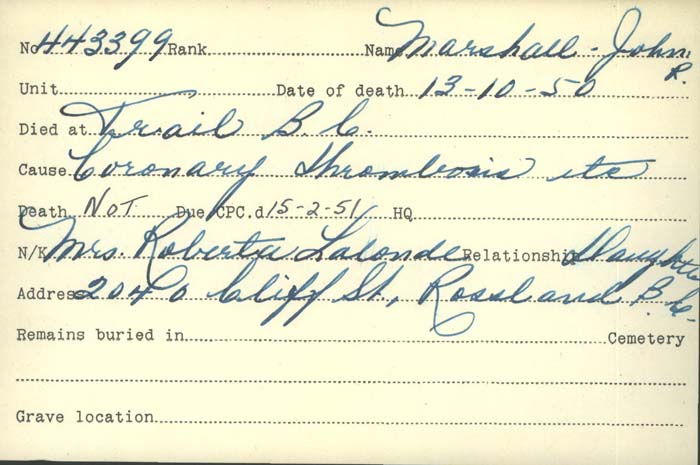 No 443399 Rank Name Marshall - John R.
Unit Date of death 13-10-50
Died at Trail B.C.
Cause Coronary Thrombosis etc
Death Not Due CPC.d 15-2-51 HQ
N/K Mrs. Roberta Lalonde Relationship Daughter
Address 2040 Cliff St., Rossland B.C.
Remains buried in Cemetery
Grave location